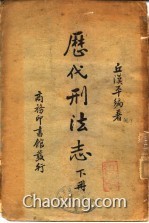 丘漢平編著
歷代刑法志 下冊
商務印書館發行
Chaoxing.com